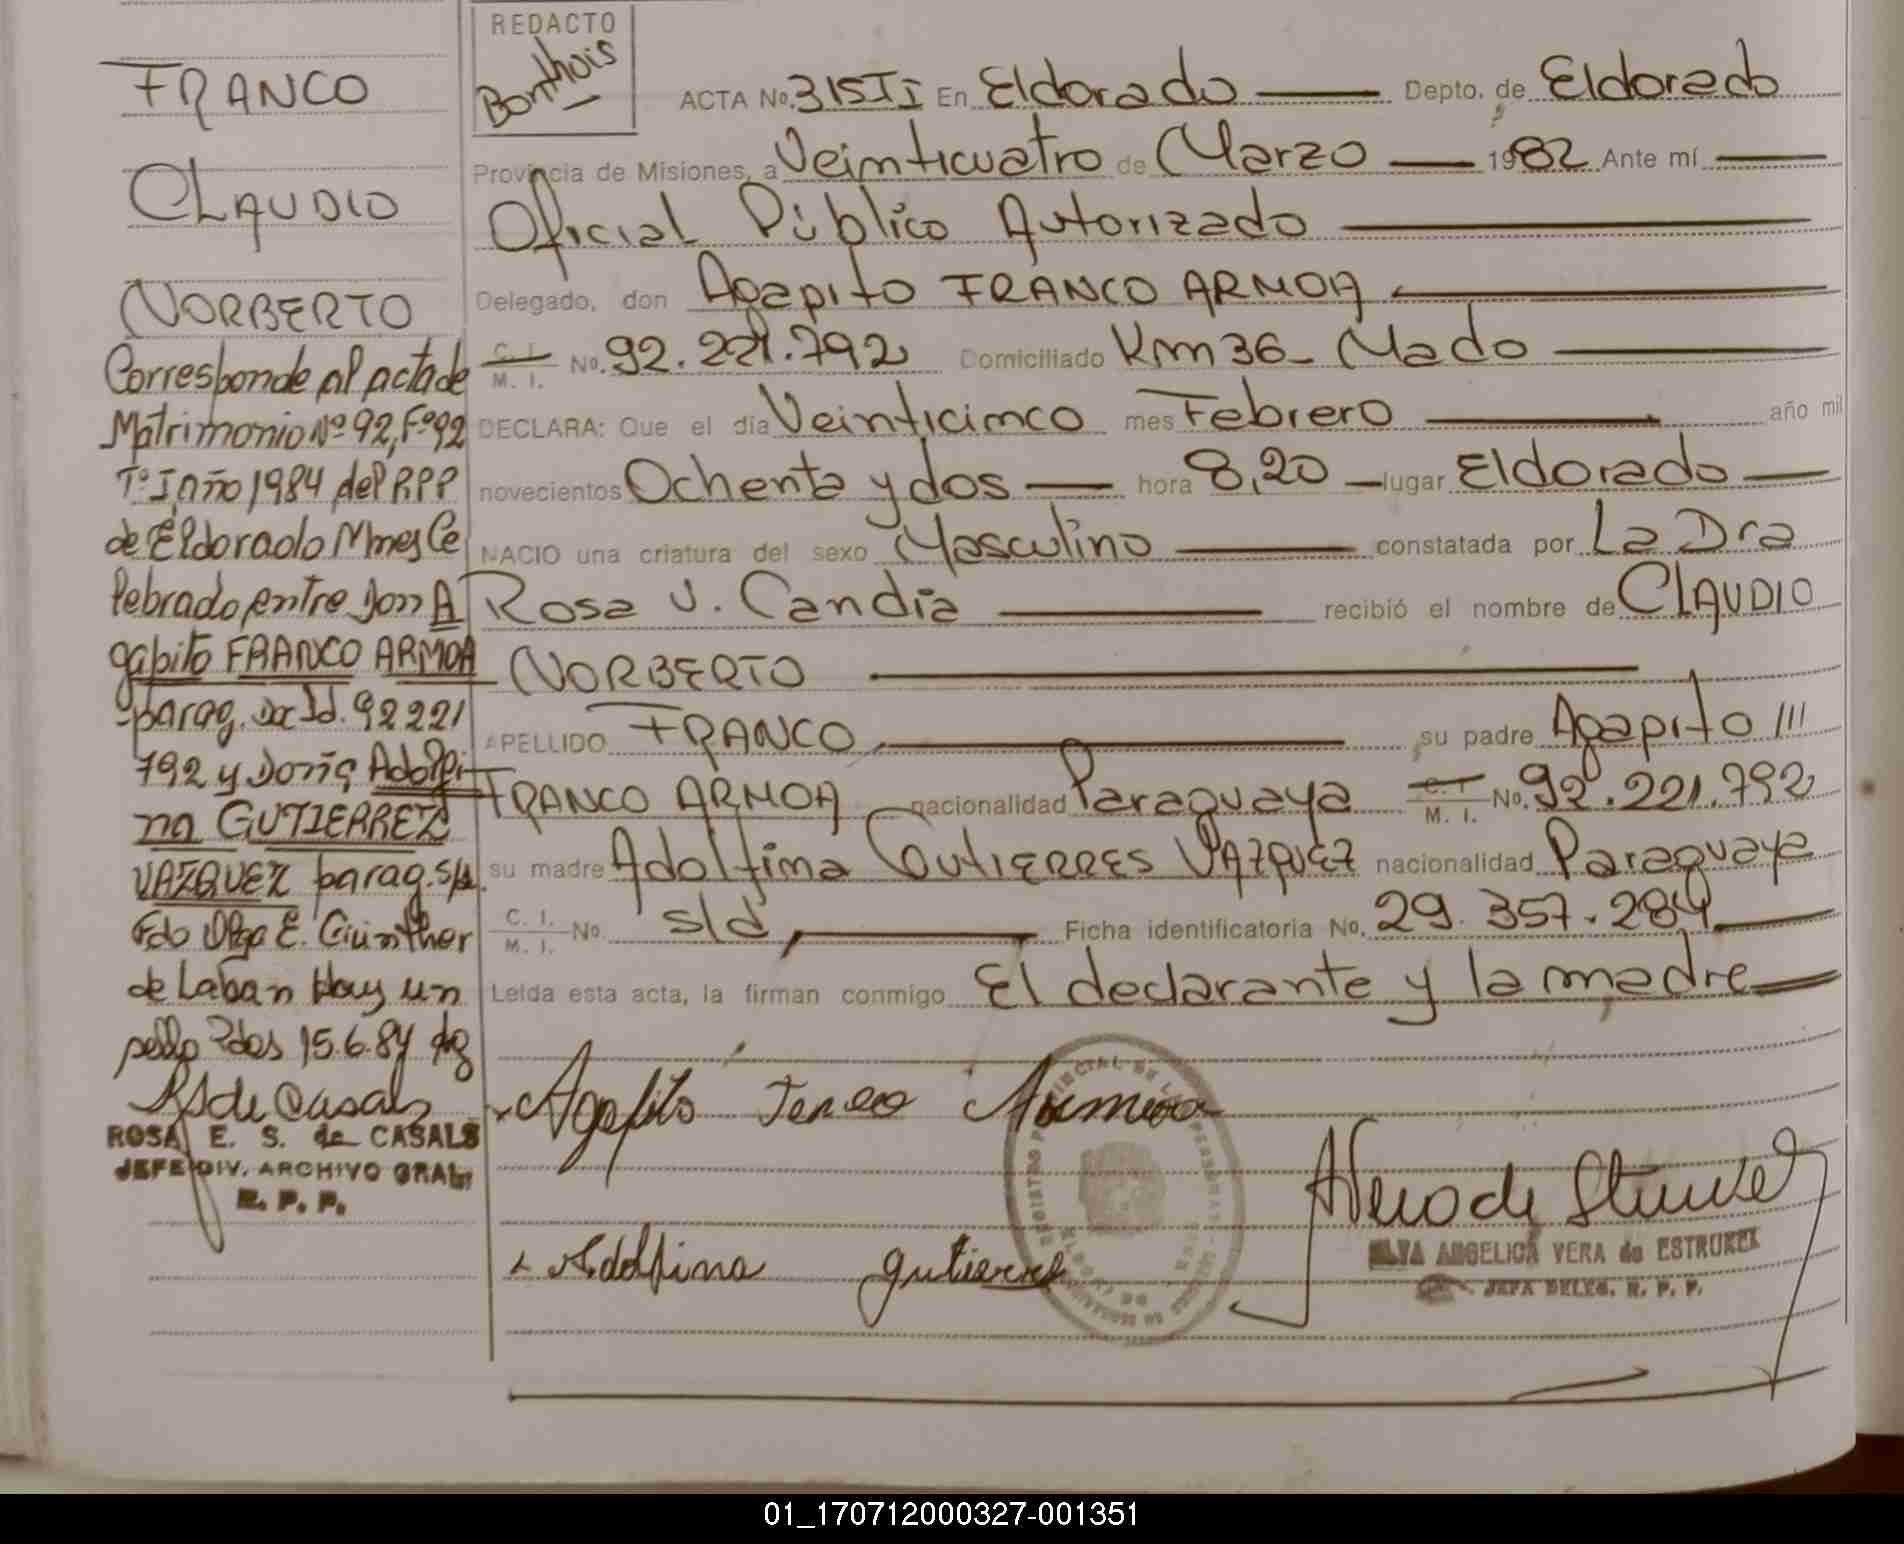 FRANCO
CLAUDIO
NORBERTO
Corresponde al acta de
Matrimonio Nº 92, Fº 92
Tº I año 1984 del RPP
de Eldorado Mnes Ce
lebrado entre Don A
gapito FRANCO ARMOA
parag. Doc Id. 92 221
792 y Doña Adolfi
na GUTIERREZ
VAZQUEZ parag. s/d.
Fdo Olga E. Günther
de Laban Hay un
sello Pdas 15.6.84
de Casals
ROSA E. S. de CASALS
JEFE DIV. ARCHIVO GRAL.
R. P. P.
REDACTO
Bonthuis
ACTA No. 315 II En Eldorado Depto. de Eldorado
Provincia de Misiones, a Veinticuatro de Marzo 1982 Ante mí
Oficial Público Autorizado
Delegado, don Agapito FRANCO ARMOA
C. I. M. I. No. 92.221.792 Domiciliado Km 36 - Mado
DECLARA: Que el día Veinticinco mes Febrero año mil
novecientos Ochenta y dos hora 8,20 lugar Eldorado
NACIO una criatura del sexo Masculino constatada por La Dra
Rosa J. Candia recibió el nombre de CLAUDIO
NORBERTO
APELLIDO FRANCO su padre Agapito ///
FRANCO ARMOA nacionalidad Paraguaya C. I M. I. No. 92.221.792
su madre Adolfina GUTIERRES VAZQUEZ nacionalidad Paraguaya
C. I. M. I. No. s/d Ficha identificatoria No. 29.357.284
Leída esta acta, la firman conmigo El declarante y la madre
Agapito Armoa
Adolfina gutierres
ELVA ANGELICA VERA de ESTRUKEL
JEFA DELEG. R. P. P.
01_170712000327-001351